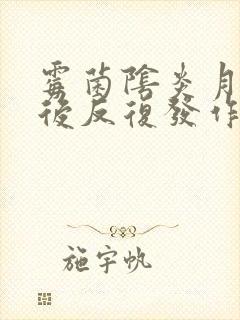 霉菌陰炎月
後反復發作
施宇帆